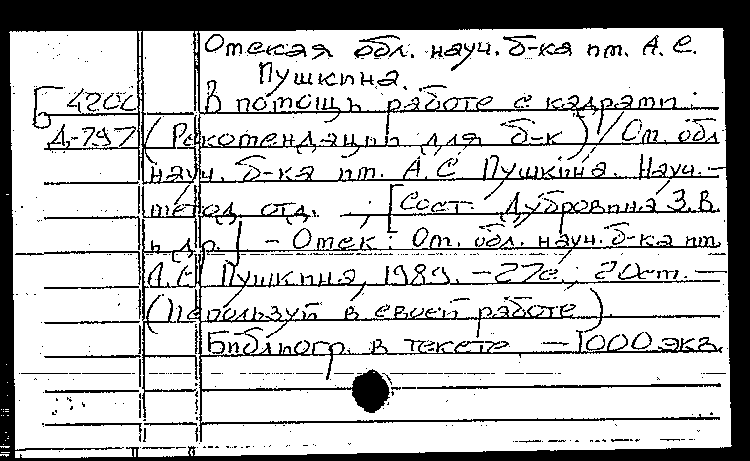 Омская обл. науч. б-ка им. А. С.
Пушкина.
Б 4200 В помощь работе с кадрами :
Д-797 (Рекомендации для б-к) / Ом. обл
науч. б-ка им. А. С Пушкина. Науч.-
метод. отд. ; [Сост. Дубровина З. В.
и др.] - Омск : Ом. обл. науч. б-ка им
А. С. Пушкина, 1989. - 27с.; 20см. -
(Используй в своей работе).
Библиогр. в тексте - 1000 экз.